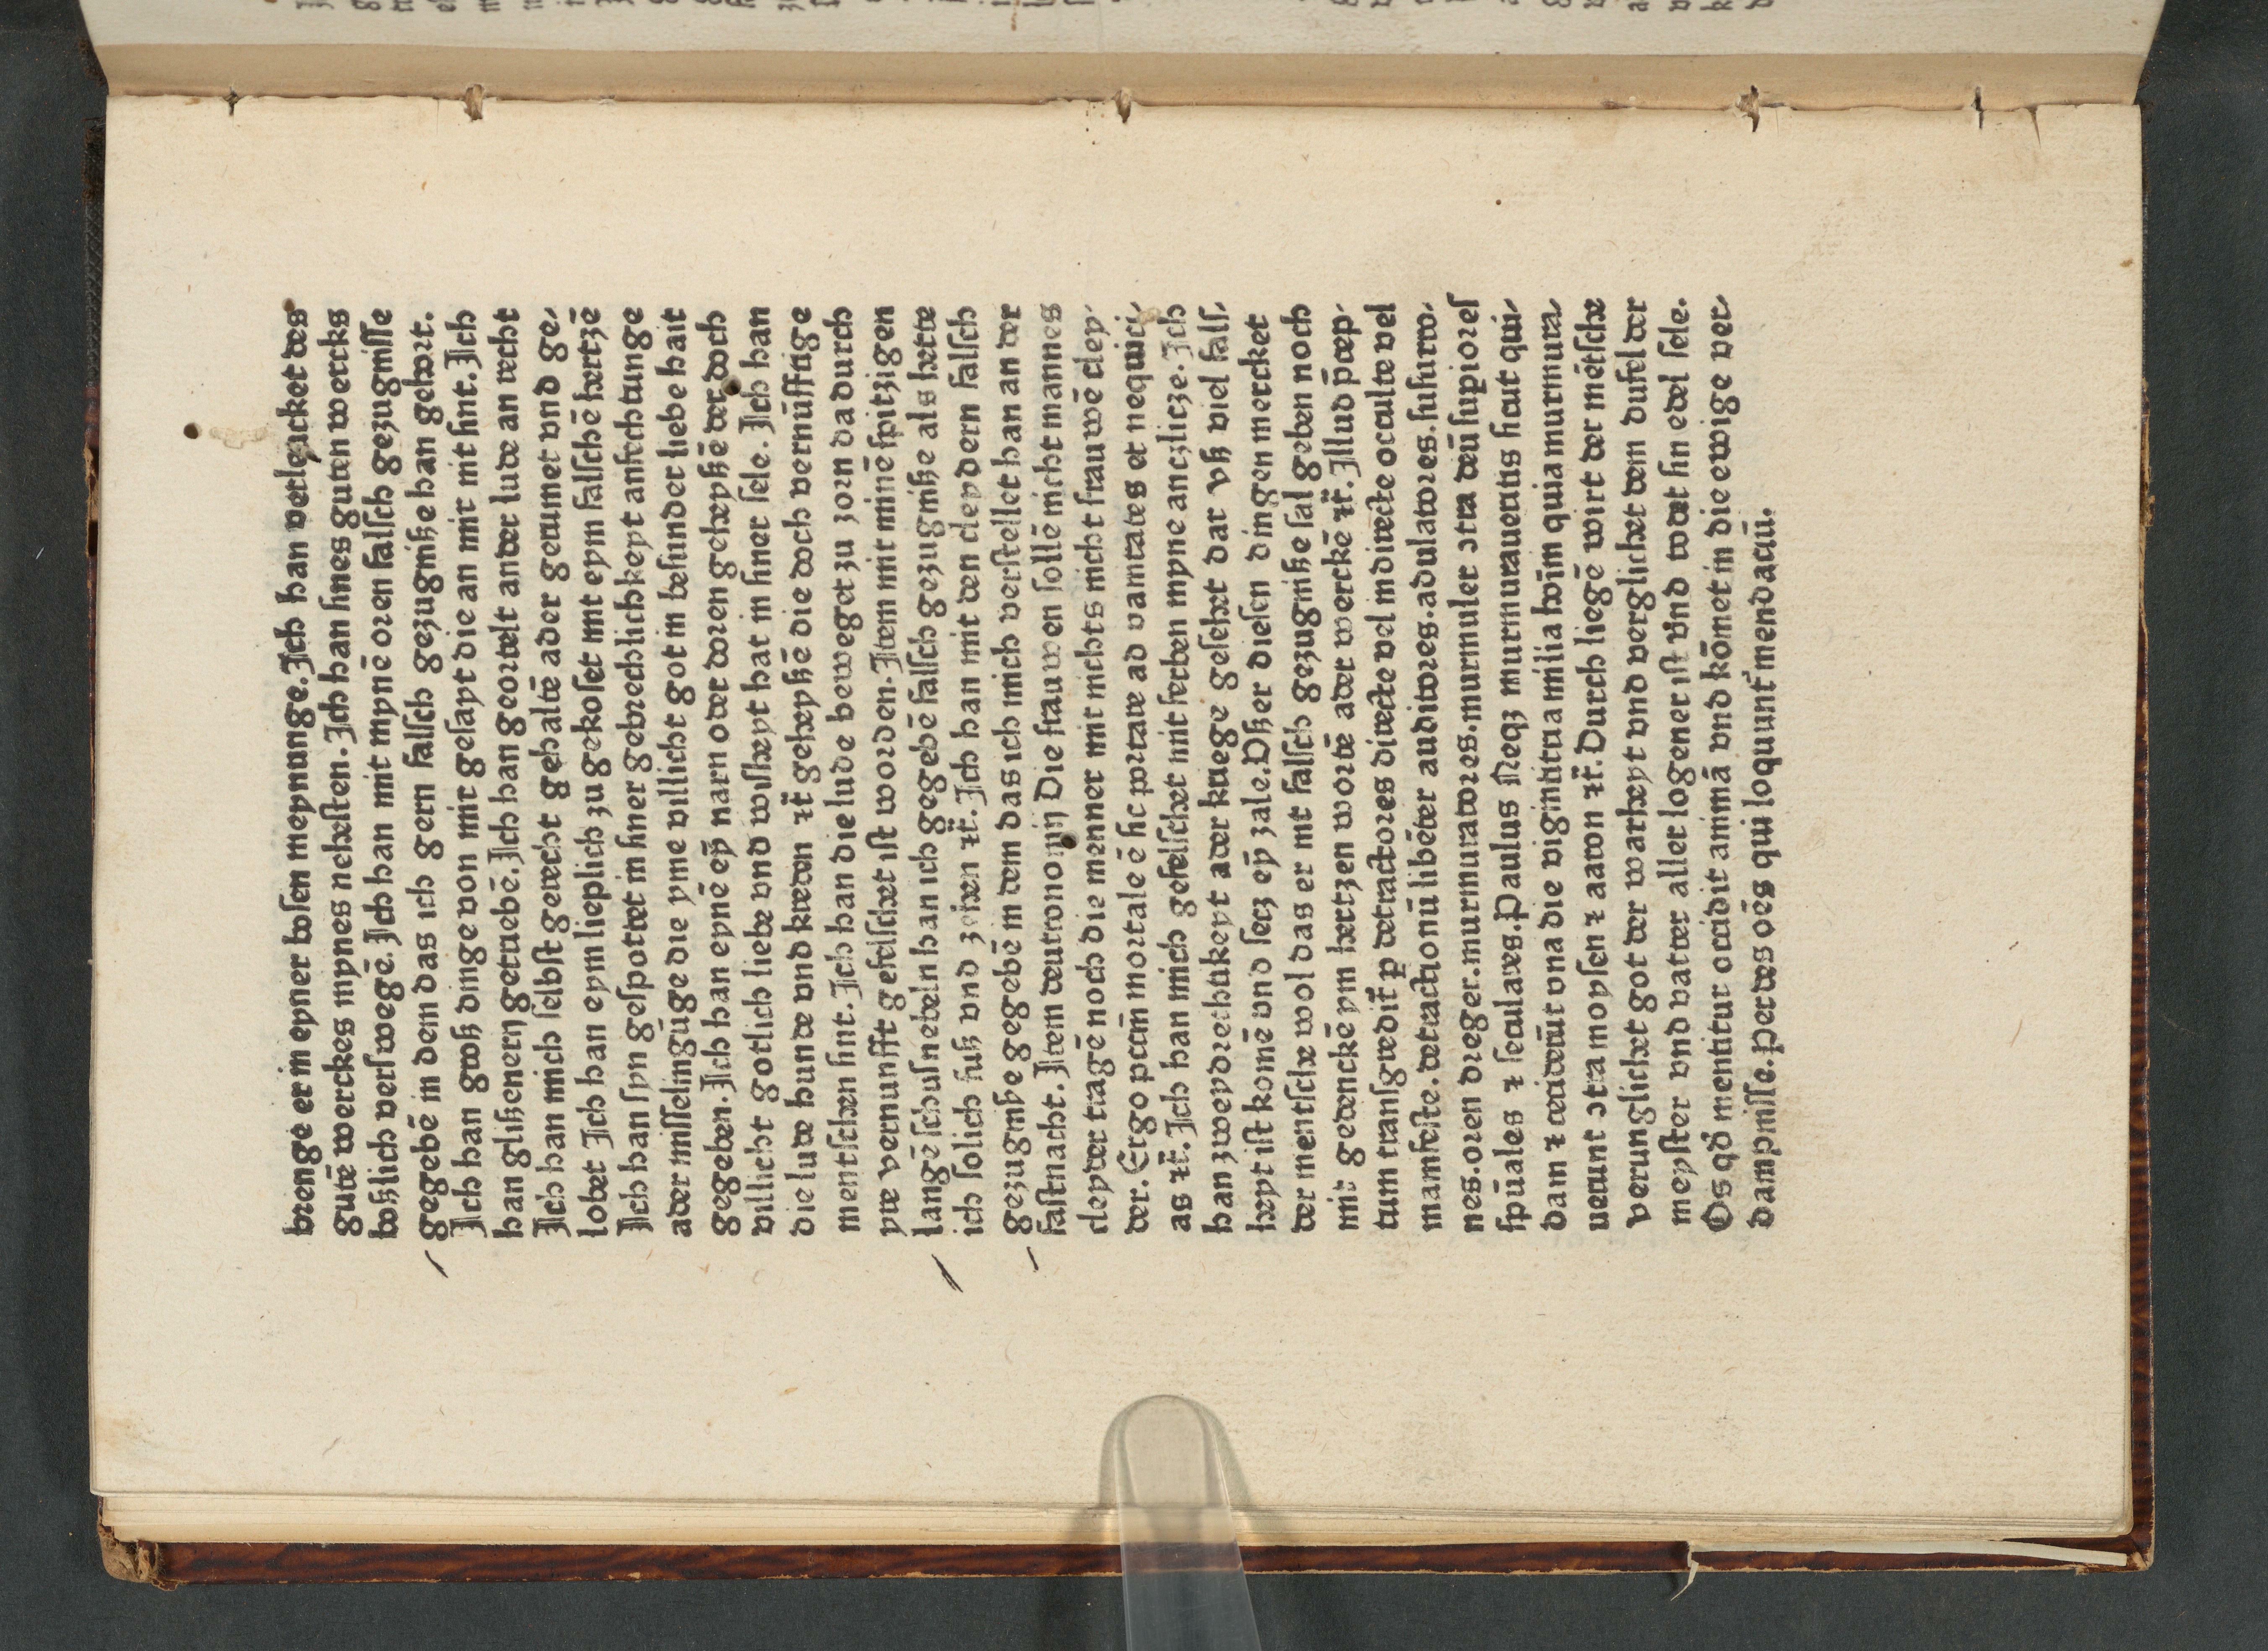 brenge er in eyner bosen meynunge. Jch han verkacket des
gutē werckes mynes nehesten. Jch han sines guten wercks
boßlich verswegē. Jch han mit mynē oren falsch gezugnisse
gegebē in dem das ich gern falsch gezugniße han gehort.
Jch han groß dinge von mir gesayt die an mir nit sint. Jch
han glißenery getruebē. Jch han georteilt ander lude an recht
Jch han mich selbst gerecht gehaltē ader gerumet vnd ge⸗
lobet Jch han eym lieplich zu gekoset mit eym falschē hertzē
Jch han syn gespottet in siner gebrechlichkeyt anfechtunge
ader misselingūge die yme villicht got in besunder liebe hait
gegeben. Jch han eynē eyn̄ narn oder doren geheyßē der doch
villicht gotlich liebe vnd wißheyt hat in siner sele. Jch han
die lude hunde vnd kreden ⁊c̄ geheyßē die doch vernūfftige
mentschen sint. Jch han die lude beweget zu zorn da durch
yre vernunfft gefelschet ist worden. Jtem mit minē spitzigen
langē schuſnebeln han ich gegebē falsch gezugniße als hette
ich solich fuß vnd zehen ⁊c̄. Jch han mit den cleydern falsch
gezugniße gegebē in dem das ich mich verstellet han an der
fastnacht. Jtem deutronomij Die frauwen sollē nicht mannes
cleyder tragē noch die menner mit nichts nicht frauwē cley⸗
der. Ergo pccm̄ mortale ē sic portare ad vanitates et nequici⸗
as ⁊c̄. Jch han mich gefelschet mit ferben myne anczlicze. Jch
han zweydrechtikeyt ader kriege gesehet dar vß viel fals⸗
heyt ist komē vnd secz eyn̄ zale. Vßer diesen dingen mercket
der mentsche wol das er mit falsch gezugniße sal geben noch
mit gedenckē ym hertzen wortē ader werckē ⁊c̄. Jllud p̄cep⸗
tum transgredit᷑ ꝑ detractores directe vel indirecte occulte vel
manifeste. detractionū libēter auditores. adulatores. susurro⸗
nes. oren dreger. murmuratores. murmulet ↄtra deū supiores
spūales ⁊ seculares. Paulus Neqꝫ murmuraueritis sicut qui⸗
dam ⁊ ceciderūt vna die vigintitria milia hoīm quia murmura⸗
uerunt ↄtra moysen ⁊ aaron ⁊c̄. Durch liegē wirt der mētsche
verunglichet got der warheyt vnd verglichet dem dufel der
meyster vnd vatter aller logener ist vnd todet sin edel sele.
Os qd̄ mentitur occidit animā vnd kōmet in die ewige ver⸗
dampnisse. Perdes oēs qui loquunt᷑ mendaciū.